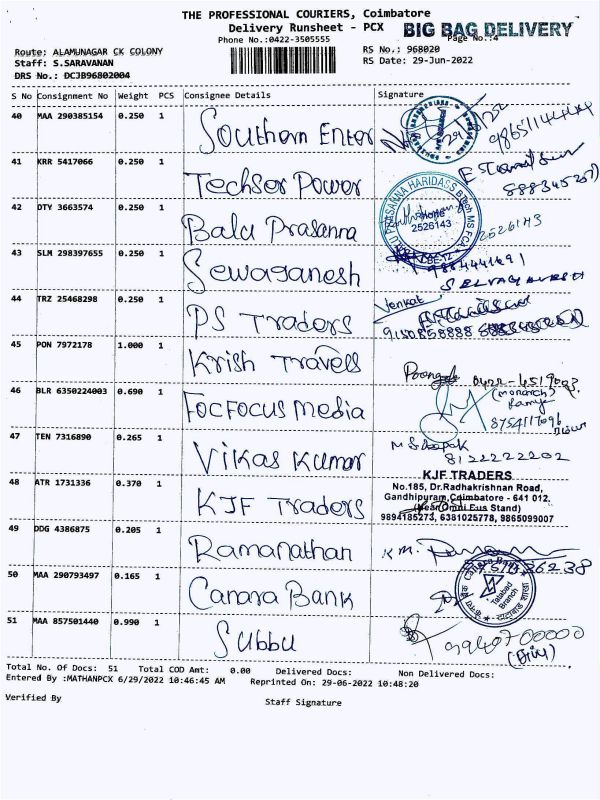 THE PROFESSIONAL COURIERS, Coimbatore
Delivery Runsheet - PCX
BIG BAG DELIVERY
Phone No.:0422-3505555
Page No.:4
Route: ALAMUNAGAR CK COLONY
RS No.: 968020
Staff: S.SARAVANAN
RS Date: 29-Jun-2022
DRS No.: DCJB96802004
S No Consignment No Weight PCS Consignee Details Signature
40 MAA 290385154 0.250 1 Southern Enter
41 KRR 5417066 0.250 1 Techser Power
42 DTY 3663574 0.250 1 Balu Prasanna
HOME
2526143
2526143
43 SLM 298397655 0.250 1 Sewaganesh
44 TRZ 25468298 0.250 1 PS Traders Venkat
9150858888
45 PON 7972178 1.000 1 Krish Travels
46 BLR 6350224003 0.690 1 FocFocus Media
(monarch)
47 TEN 7316890 0.265 1 Vikas Kumar
8122222202
48 ATR 1731336 0.370 1 KJF Traders
KJF TRADERS
No.185, Dr.Radhakrishnan Road,
Gandhipuram,Coimbatore - 641 012.
(Near Omni Bus Stand)
9894185273, 6381025778, 9865099007
49 DDG 4386875 0.205 1 Ramanathan
50 MAA 290793497 0.165 1 Canara Bank
Canara Bank
Tatabad
Branch
51 MAA 857501440 0.990 1 Subbu
9940700000
Total No. Of Docs: 51 Total COD Amt: 0.00 Delivered Docs: Non Delivered Docs:
Entered By :MATHANPCX 6/29/2022 10:46:45 AM Reprinted On: 29-06-2022 10:48:20
Verified By
Staff Signature